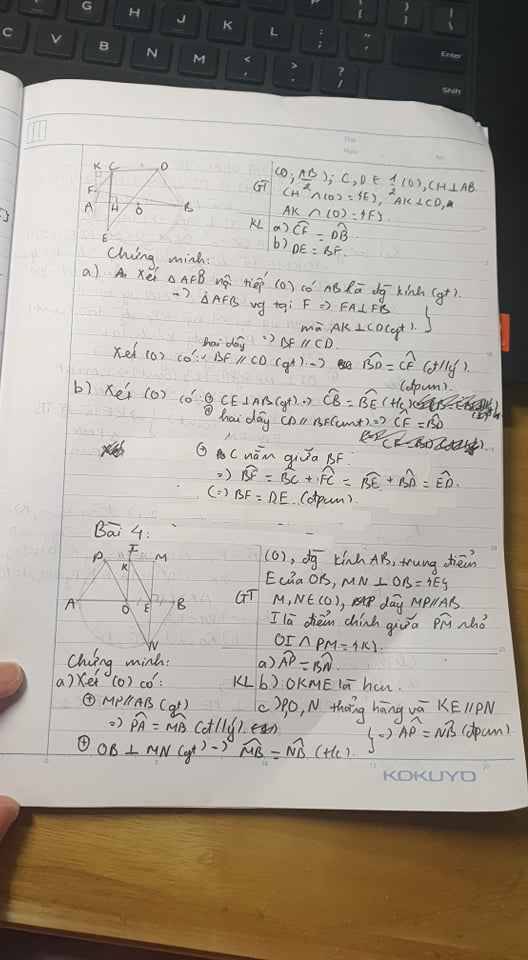 C
J
K
L
V
B
N
M
Enter
Shift
K C D
F
A H O B
E
GT (O; AB/2); C, D ∈ 1/2 (O), CH ⊥ AB
CH ∩ (O) = {E}, AK ⊥ CD,
AK ∩ (O) = {F}
KL a) CF = DB
b) DE = BF.
Chứng minh:
a) Xét △AFB nội tiếp (O) có AB là đg kính (gt).
=> △AFB vg tại F => FA ⊥ FB
mà AK ⊥ CD (gt).
hai dây => BF // CD.
Xét (O) có: BF // CD (gt) => BD = CF (đt/lý).
(đpcm)
b) Xét (O) có: + CE ⊥ AB (gt) => CB = BE (t/c)
+ hai dây CD // BF (cmt) => CF = BD
+ C nằm giữa BF.
=> BF = BC + FC = BE + BD = ED.
(=) BF = DE. (đpcm).
Bài 4:
P I M
K
A O E B
N
GT (O), đg kính AB, trung điểm
E của OB, MN ⊥ OB = {E}
M, N ∈ (O), dây MP // AB.
I là điểm chính giữa PM nhỏ
OI ∩ PM = {K}.
KL a) AP = BN.
b) OKME là hcn.
c) P, O, N thẳng hàng và KE // PN
Chứng minh:
a) Xét (O) có:
+ MP // AB (gt)
=> PA = MB (đt/lý).
+ OB ⊥ MN (gt) => MB = NB (t/c)
=> AP = NB (đpcm)
KOKUYO